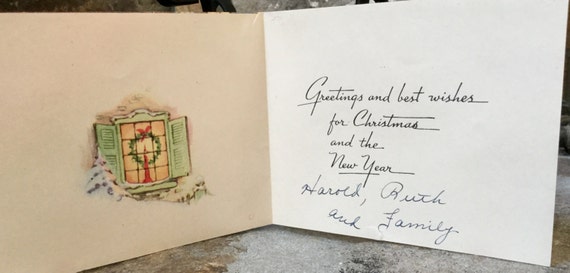 Greetings and best wishes
for Christmas
and the
New Year
Harold, Ruth
and Family